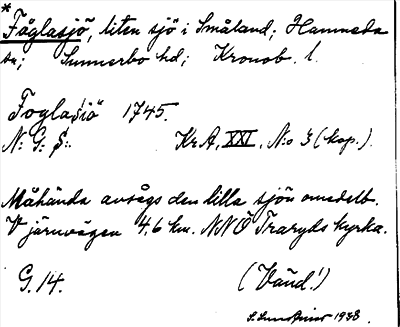 * Fåglasjö, liten sjö i Småland; Hamneda
sn; Sunnerbo hd; Kronob. l.
Foglasiö 1745.
N: G: S:. KrA, XXI, N:o 3 (kop.).
Måhända avsågs den lilla sjön omedelb.
V järnvägen 4,6 km. NNÖ Traryds kyrka.
G. 14. (Vänd!)
1938.